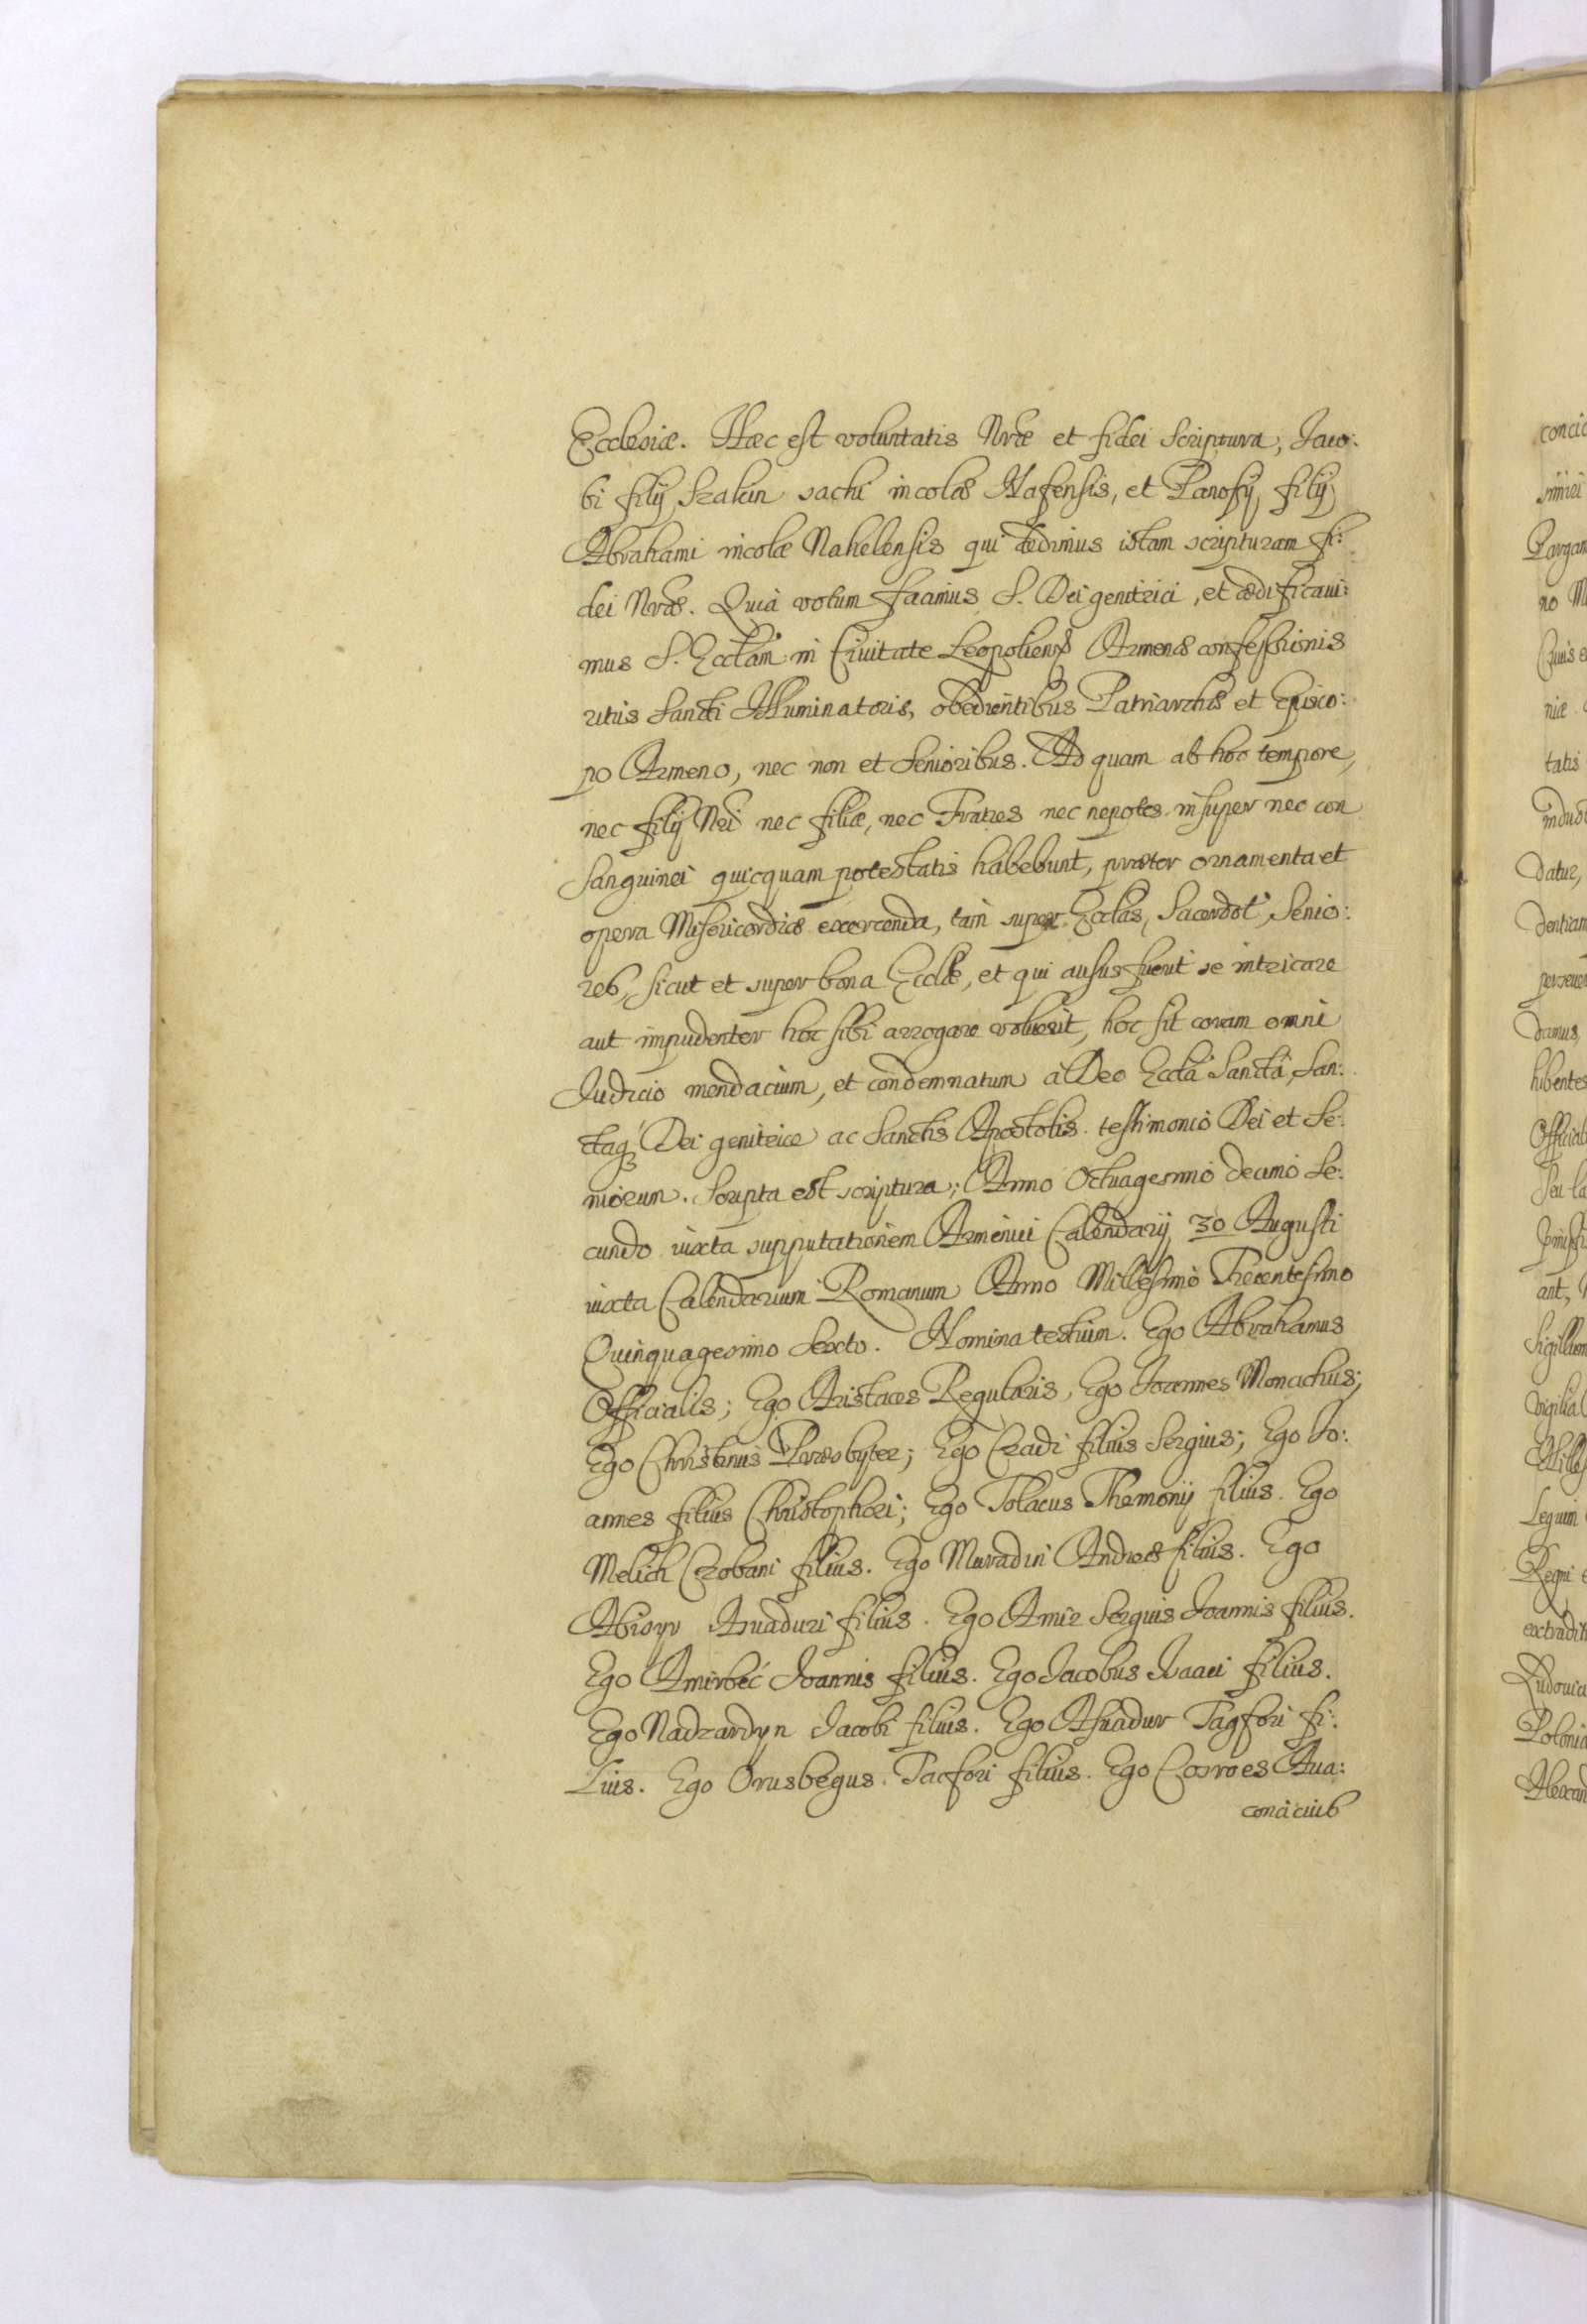 Ecclesiæ. Hæc est voluntatis Nræ et fidei Scriptura, Jaco:
bi filij Szalun sachi incolæ Hafensis, et Panosij, filij
Abrahami incolæ Nahelensis qui dedimus istam scripturam fi:
dei Nræ. Quià votum facimus S. Dei genitrici, et ædificaui:
mus S. Ecclam in Civitate Leopoliens Armenæ confessionis
ritus Sancti Illuminatoris, obedientibus Patriarchis et Episco:
po Armeno, nec non et Senioribus. Ad quam ab hoc tempore,
nec filij Nri nec filiæ, nec Fratres nec nepotes insuper nec con
Sanguinei quicquam potestatis habebunt, præter ornamenta et
opera Misericordiæ exercenda, tam super Ecclas, Sacerdot, Senio:
res, sicut et super bona Ecclæ, et qui ausus fuerit se intricare
aut impudenter hoc sibi arrogare voluerit, hoc sit coram omni
Judicio mendacium, et condemnatum à Deo Eccla Sancta, San:
ctaq Dei genitrice ac Sanctis Apostolis testimonio Dei et Se:
niorum. Scripta est scriptura; Anno Octuagesimo decimo Se:
cundo iuxta supputationem Armenici Calendarij 30 Augusti
iuxta Calendarium Romanum Anno Millesimo Trecentesimo
Quinquagesimo Sexto. Nomina testium. Ego Abrahamus
Officialis; Ego Aristaces Regularis, Ego Joannes Monachus;
Ego Christinus Præsbyter; Ego Czadi filius Sergius; Ego Jo:
annes filius Christophori; Ego Tolacus Themonij filius. Ego
Melich Czobani filius. Ego Muradin Andreæ filius. Ego
Abisyr Asuaduri filius. Ego Amir Serguis Joannis filius.
Ego Amirbeć Joannis filius. Ego Jacobus Jvaaei filius.
Ego Nadzardyn Jacobi filius. Ego Asuadur Tagfori fi:
Lius. Ego Orusbegus Tacfori filius. Ego Cosroes Aua:
conciciuis
concic
Pargam
no M
Civis e
niæ
tatis
induct
datur,
dentiam
persever
damus,
hibentes
Official
Seu la
ant,
Sigillum
vigilia
Mille
Legum
Regni
extradit
Ludovic
Polonia
Alexan